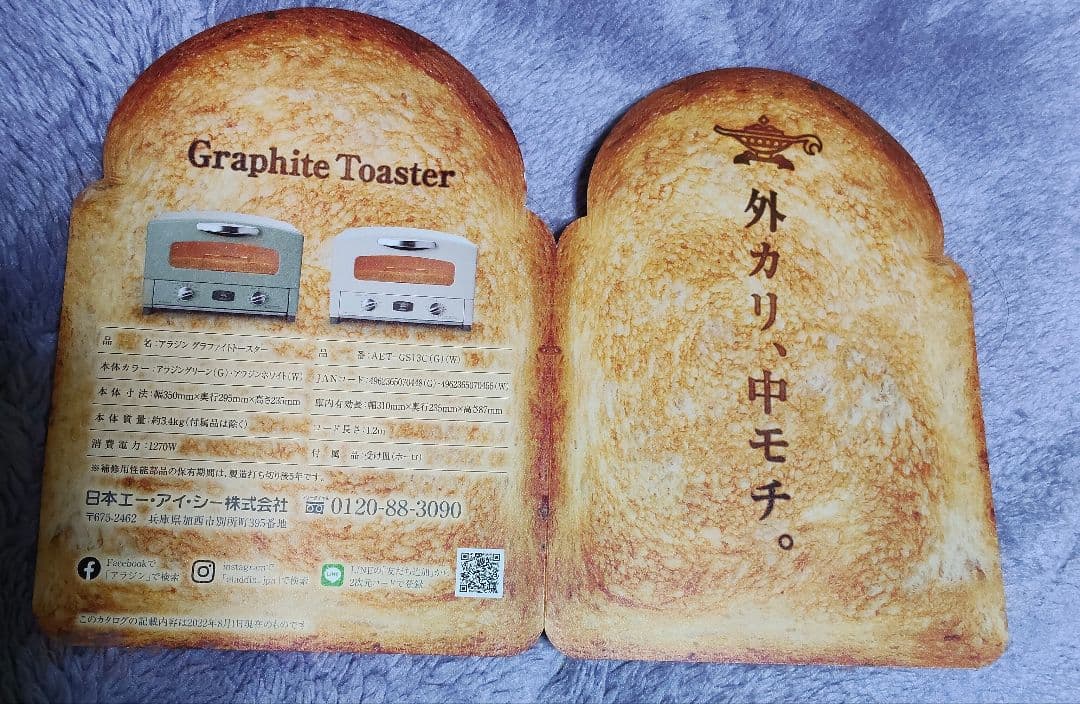 Graphite Toaster
品名:アラジン グラファイトトースター
品番:AET-GS13C(G)(W)
本体カラー:アラジングリーン(G)・アラジンホワイト(W)
JANコード:4962365070448(G)・4962365070455(W)
本体寸法:幅350mm×奥行295mm×高さ235mm
庫内有効長:幅310mm×奥行235mm×高さ87mm
本体質量:約3.4kg(付属品は除く)
コード長さ:1.2m
消費電力:1270W
付属品:受け皿(ホーロー)
※補修用性能部品の保有期間は、製造打ち切り後5年です。
日本エー・アイ・シー株式会社
0120-88-3090
〒675-2462 兵庫県加西市別所町395番地
Facebookで
「アラジン」で検索
instagramで
「aladdin_jpn」で検索
LINE
LINEの「友だち追加」から、
2次元コードで登録
このカタログの記載内容は2022年8月1日現在のものです
外カリ、中モチ。